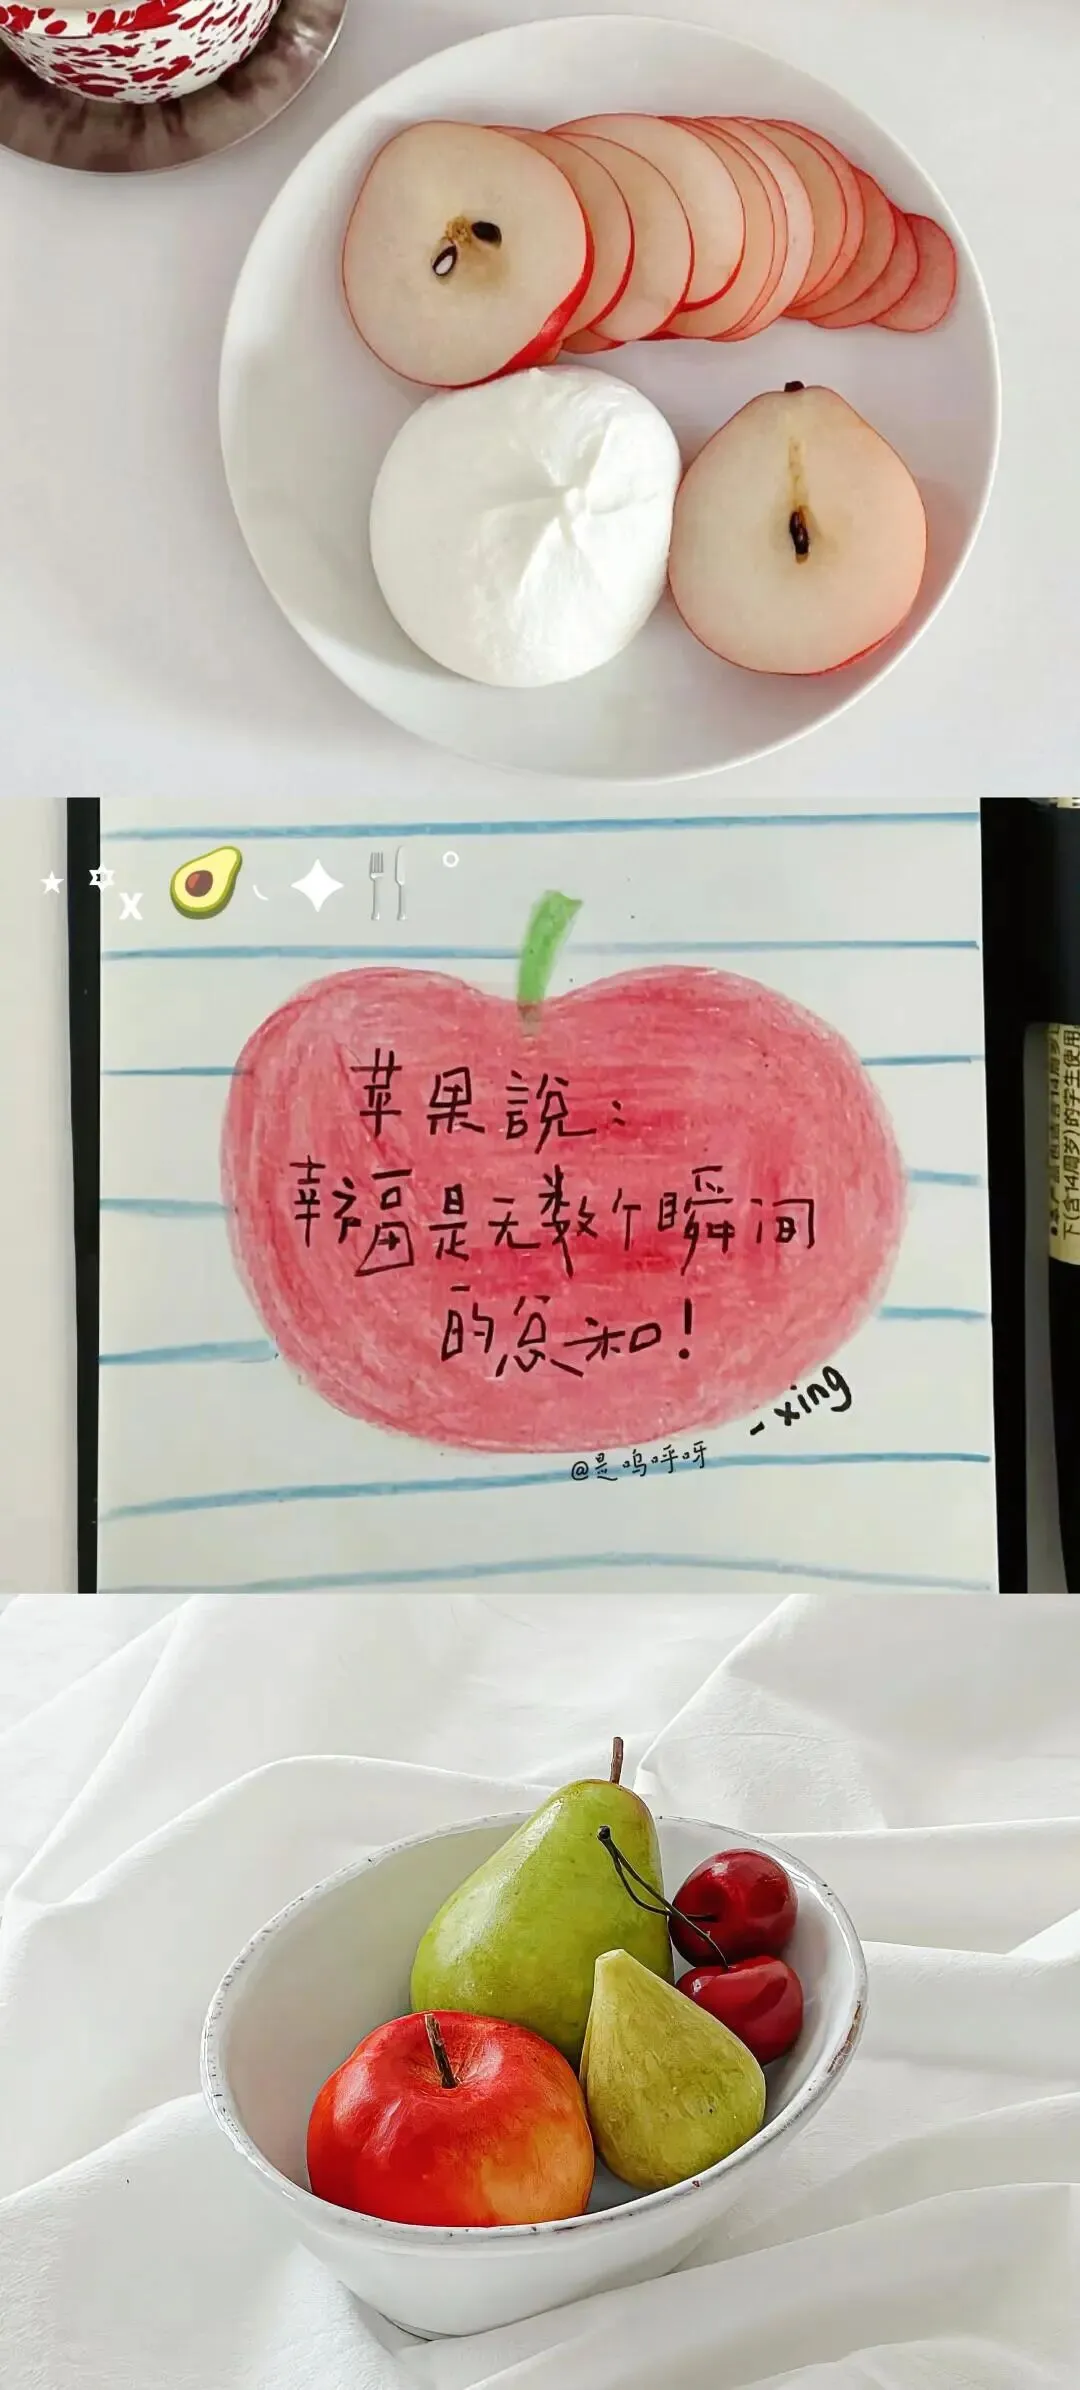 苹果說：
幸福是无数个瞬间
的总和！
- xing
@是呜呼呀
下含14周岁)的学生使用